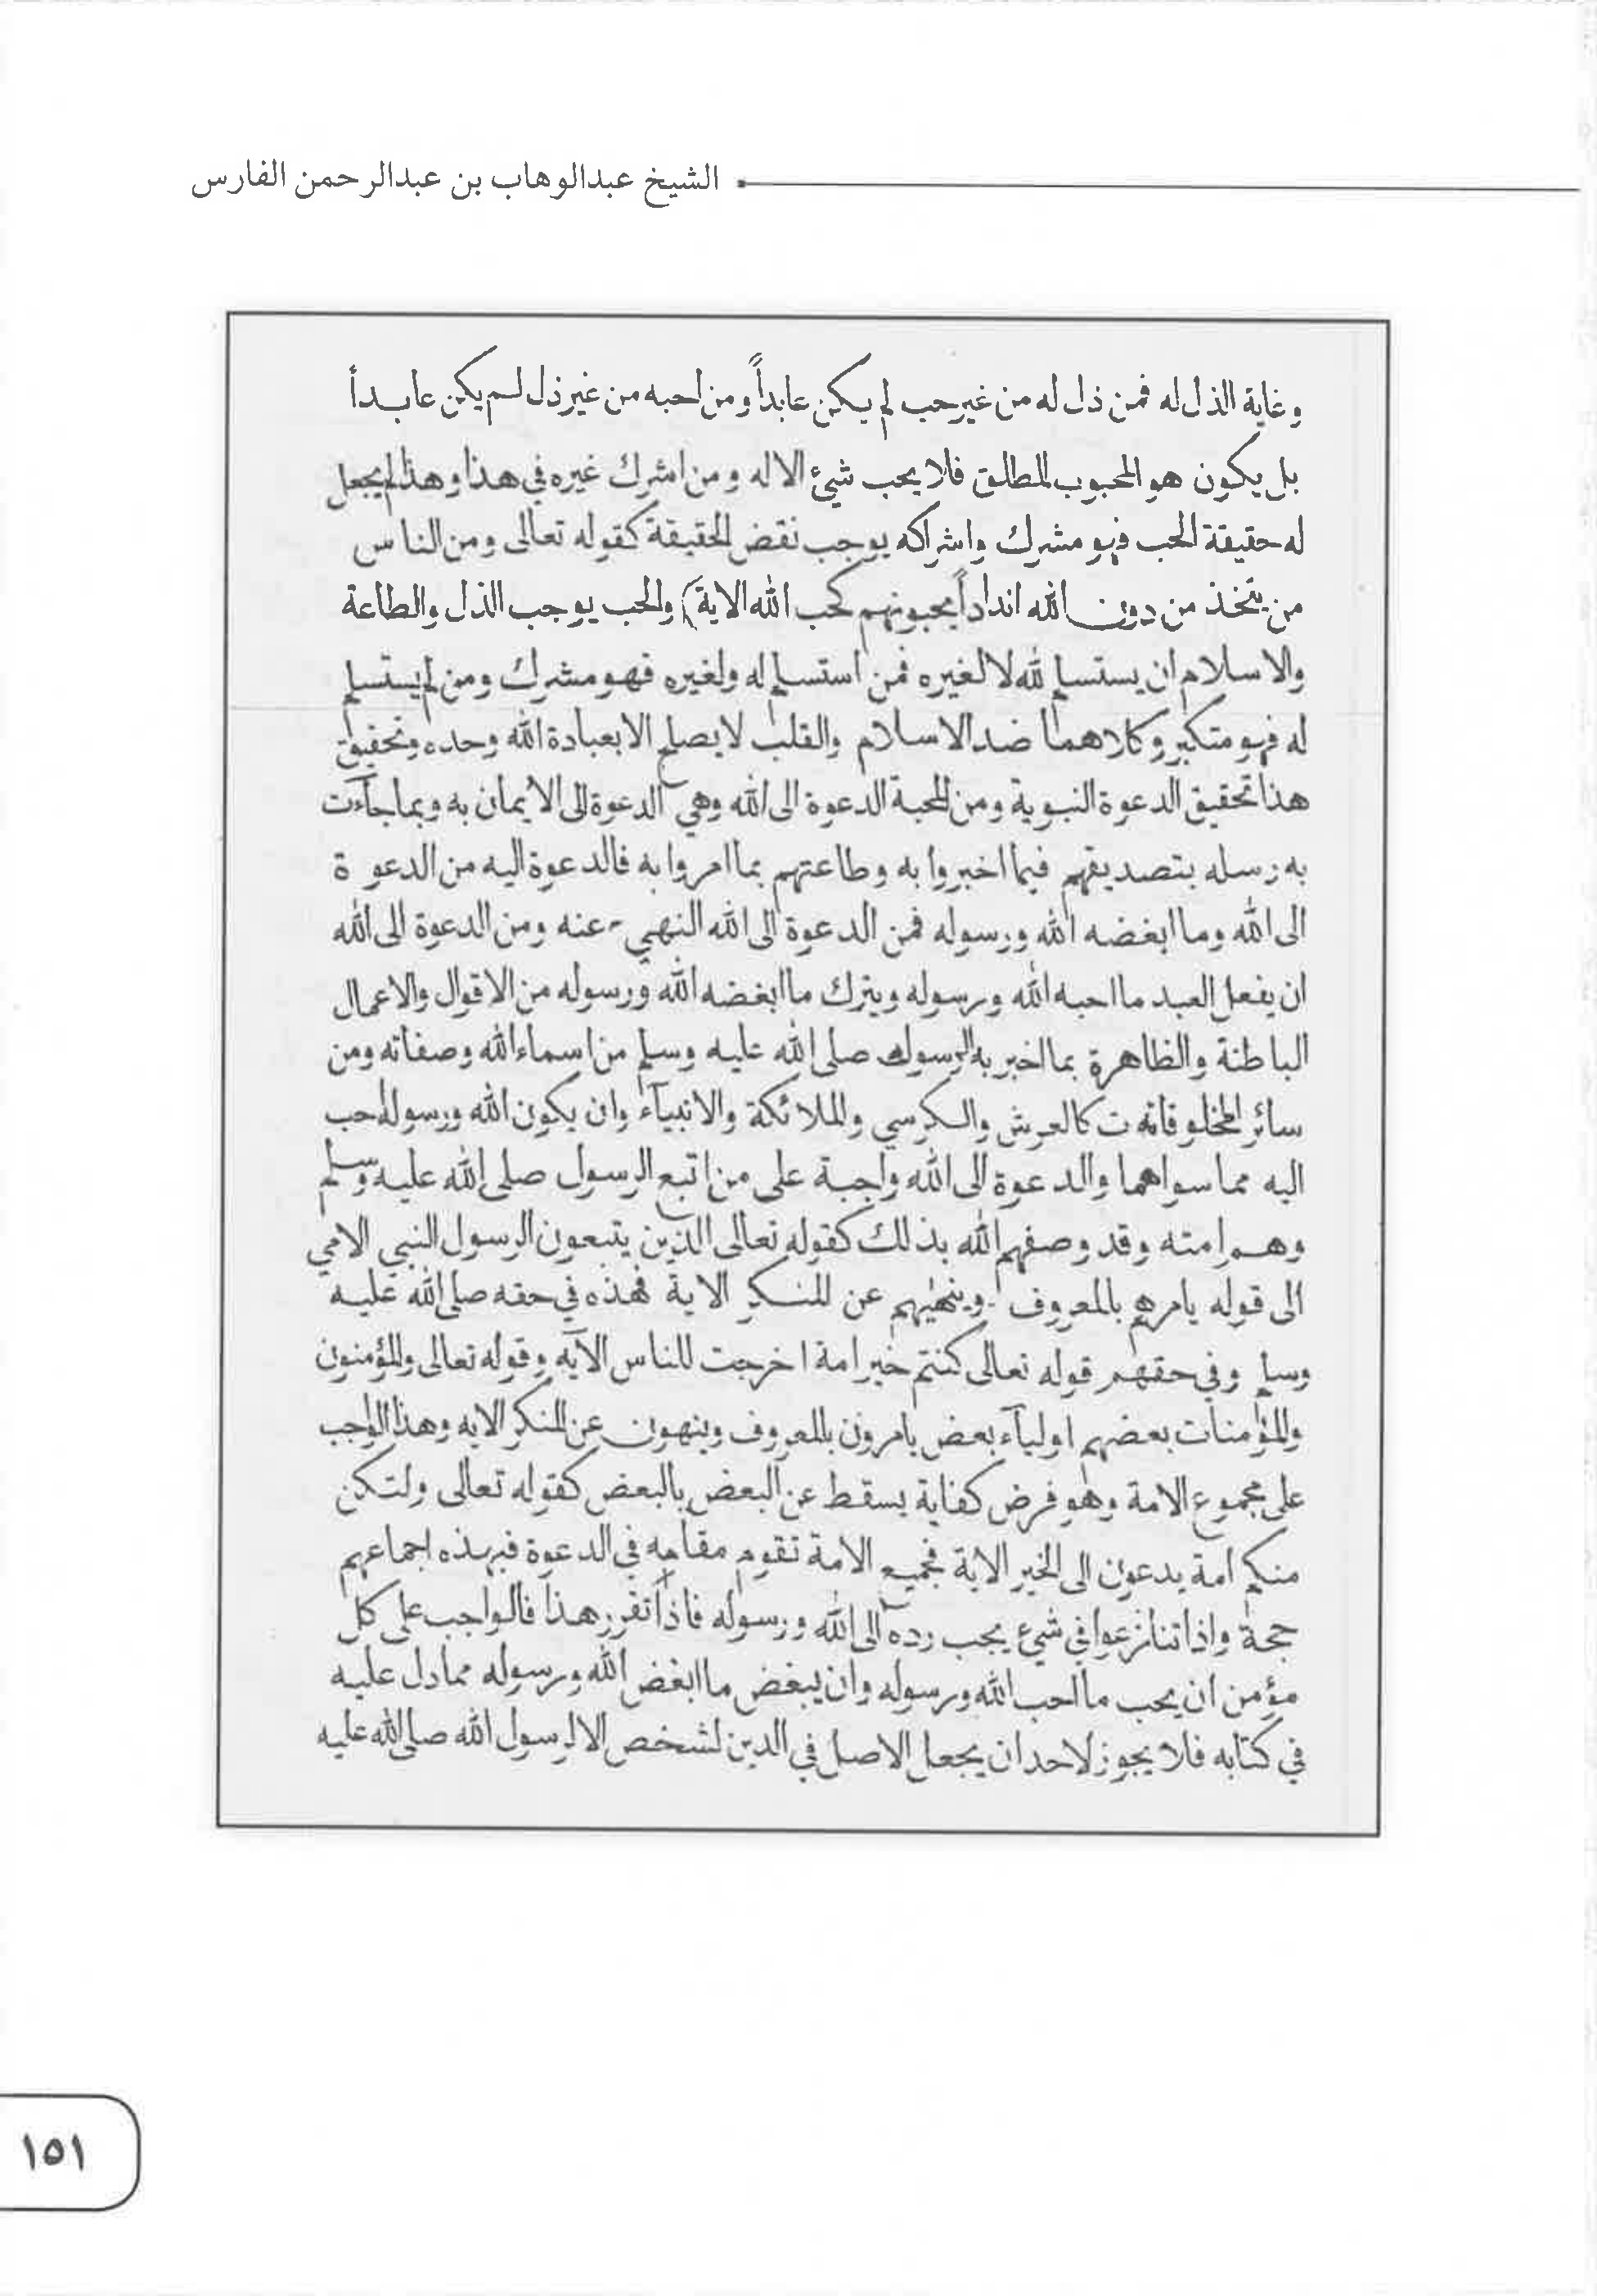 الشيخ عبدالوهاب بن عبدالرحمن الفارس
وغاية الذل له فمن ذل له من غير حب لم يكن عابداً ومن احبه من غير ذل لم يكن عابداً
بل يكون هو المحبوب المطلق فلا يحب شيئ الا له ومن اشرك غيره في هذا وهذا لم يجعل
له حقيقة الحب فهو مشرك واشراكه يوجب نقض الحقيقة كقوله تعالى ومن الناس
من يتخذ من دون الله انداداً يحبونهم كحب الله الاية) والحب يوجب الذل والطاعة
والاسلام ان يستسلم لله لا لغيره فمن استسلم له ولغيره فهو مشرك ومن لم يستسلم
له فهو متكبر وكلاهما ضد الاسلام والقلب لا يصلح الا بعبادة الله وحده وتحقيق
هذا تحقيق الدعوة النبوية ومن المحبة الدعوة الى الله وهي الدعوة الى الايمان به وبما جآءت
به رسله بتصديقهم فيما اخبروا به وطاعتهم بما امروا به فالدعوة اليه من الدعوة
الى الله وما ابغضه الله ورسوله فمن الدعوة الى الله النهي عنه ومن الدعوة الى الله
ان يفعل العبد ما احبه الله ورسوله ويترك ما ابغضه الله ورسوله من الاقوال والاعمال
الباطنة والظاهرة بما اخبر به الرسول صلى الله عليه وسلم من اسماء الله وصفاته ومن
سائر المخلوقاته ت كالعرش والكرسي والملائكة والانبيآء وان يكون الله ورسوله احب
اليه مما سواهما والدعوة الى الله واجبة على من اتبع الرسول صلى الله عليه وسلم
وهم امته وقد وصفهم الله بذلك كقوله تعالى الذين يتبعون الرسول النبي الامي
الى قوله يامرهم بالمعروف وينهيهم عن المنكر الاية فهذه في حقه صلى الله عليه
وسلم وفي حقهم قوله تعالى كنتم خير امة اخرجت للناس الآيه وقوله تعالى والمؤمنون
والمؤمنات بعضهم اوليآء بعض يامرون بالمعروف وينهون عن المنكر الايه وهذا الواجب
على مجموع الامة وهو فرض كفاية يسقط عن البعض بالبعض كقوله تعالى ولتكن
منكم امة يدعون الى الخير الاية فجميع الامة تقوم مقامه في الدعوة فبهذه اجماعهم
حجة واذا تنازعوا في شيء يجب رده الى الله ورسوله فاذا تقرر هذا فالواجب على كل
مؤمن ان يحب ما احب الله ورسوله وان يبغض ما ابغض الله ورسوله مما دل عليه
في كتابه فلا يجوز لاحد ان يجعل الاصل في الدين لشخص الا لرسول الله صلى الله عليه
١٥١